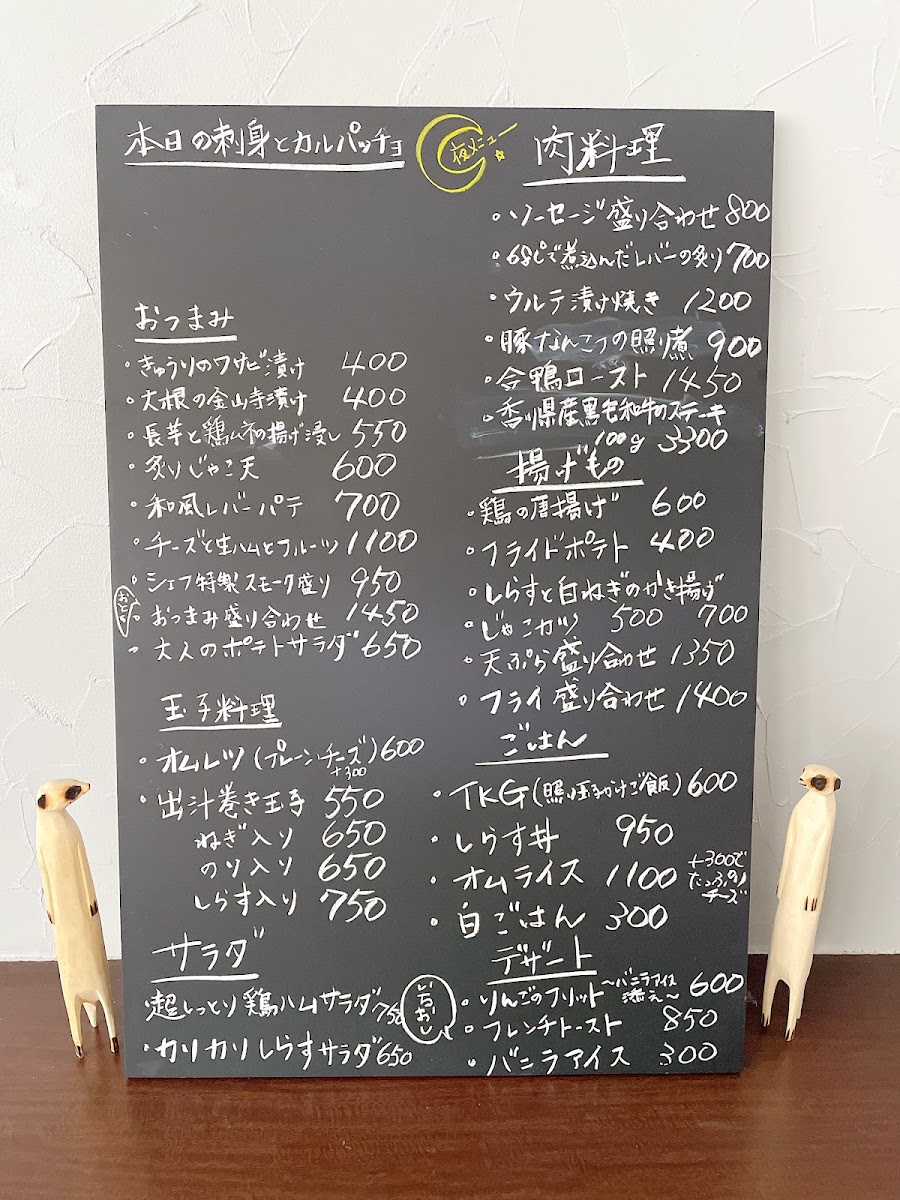 本日の刺身とカルパッチョ
夜メニュー
おつまみ
・きゅうりのワサビ漬け 400
・大根の金山寺漬け 400
・長芋と鶏ムネの揚げ浸し 550
・炙りじゃこ天 600
・和風レバーパテ 700
・チーズと生ハムとフルーツ 1100
・シェフ特製スモーク盛り 950
・おつまみ盛り合わせ 1450
・大人のポテトサラダ 650
玉子料理
・オムレツ(プレーンチーズ) 600
+300
・出汁巻き玉子 550
ねぎ入り 650
のり入り 650
しらす入り 750
サラダ
・超しっとり鶏ハムサラダ 750
いちおし
・カリカリしらすサラダ 650
肉料理
・ソーセージ盛り合わせ 800
・68℃で煮込んだレバーの炙り 700
・ウルテ漬け焼き 1200
・豚なんこつの照り煮 900
・合鴨ロースト 1450
・香川県産黒毛和牛のステーキ
100g 3300
揚げもの
・鶏の唐揚げ 600
・フライドポテト 400
・しらすと白ねぎのかき揚げ
700
・じゃこカツ 500
・天ぷら盛り合わせ 1350
・フライ盛り合わせ 1400
ごはん
・TKG(照り玉子かけご飯) 600
・しらす丼 950
・オムライス 1100
+300で
たっぷり
チーズ
・白ごはん 300
デザート
・りんごのフリット 〜バニラアイス
添え〜 600
・フレンチトースト 850
・バニラアイス 300